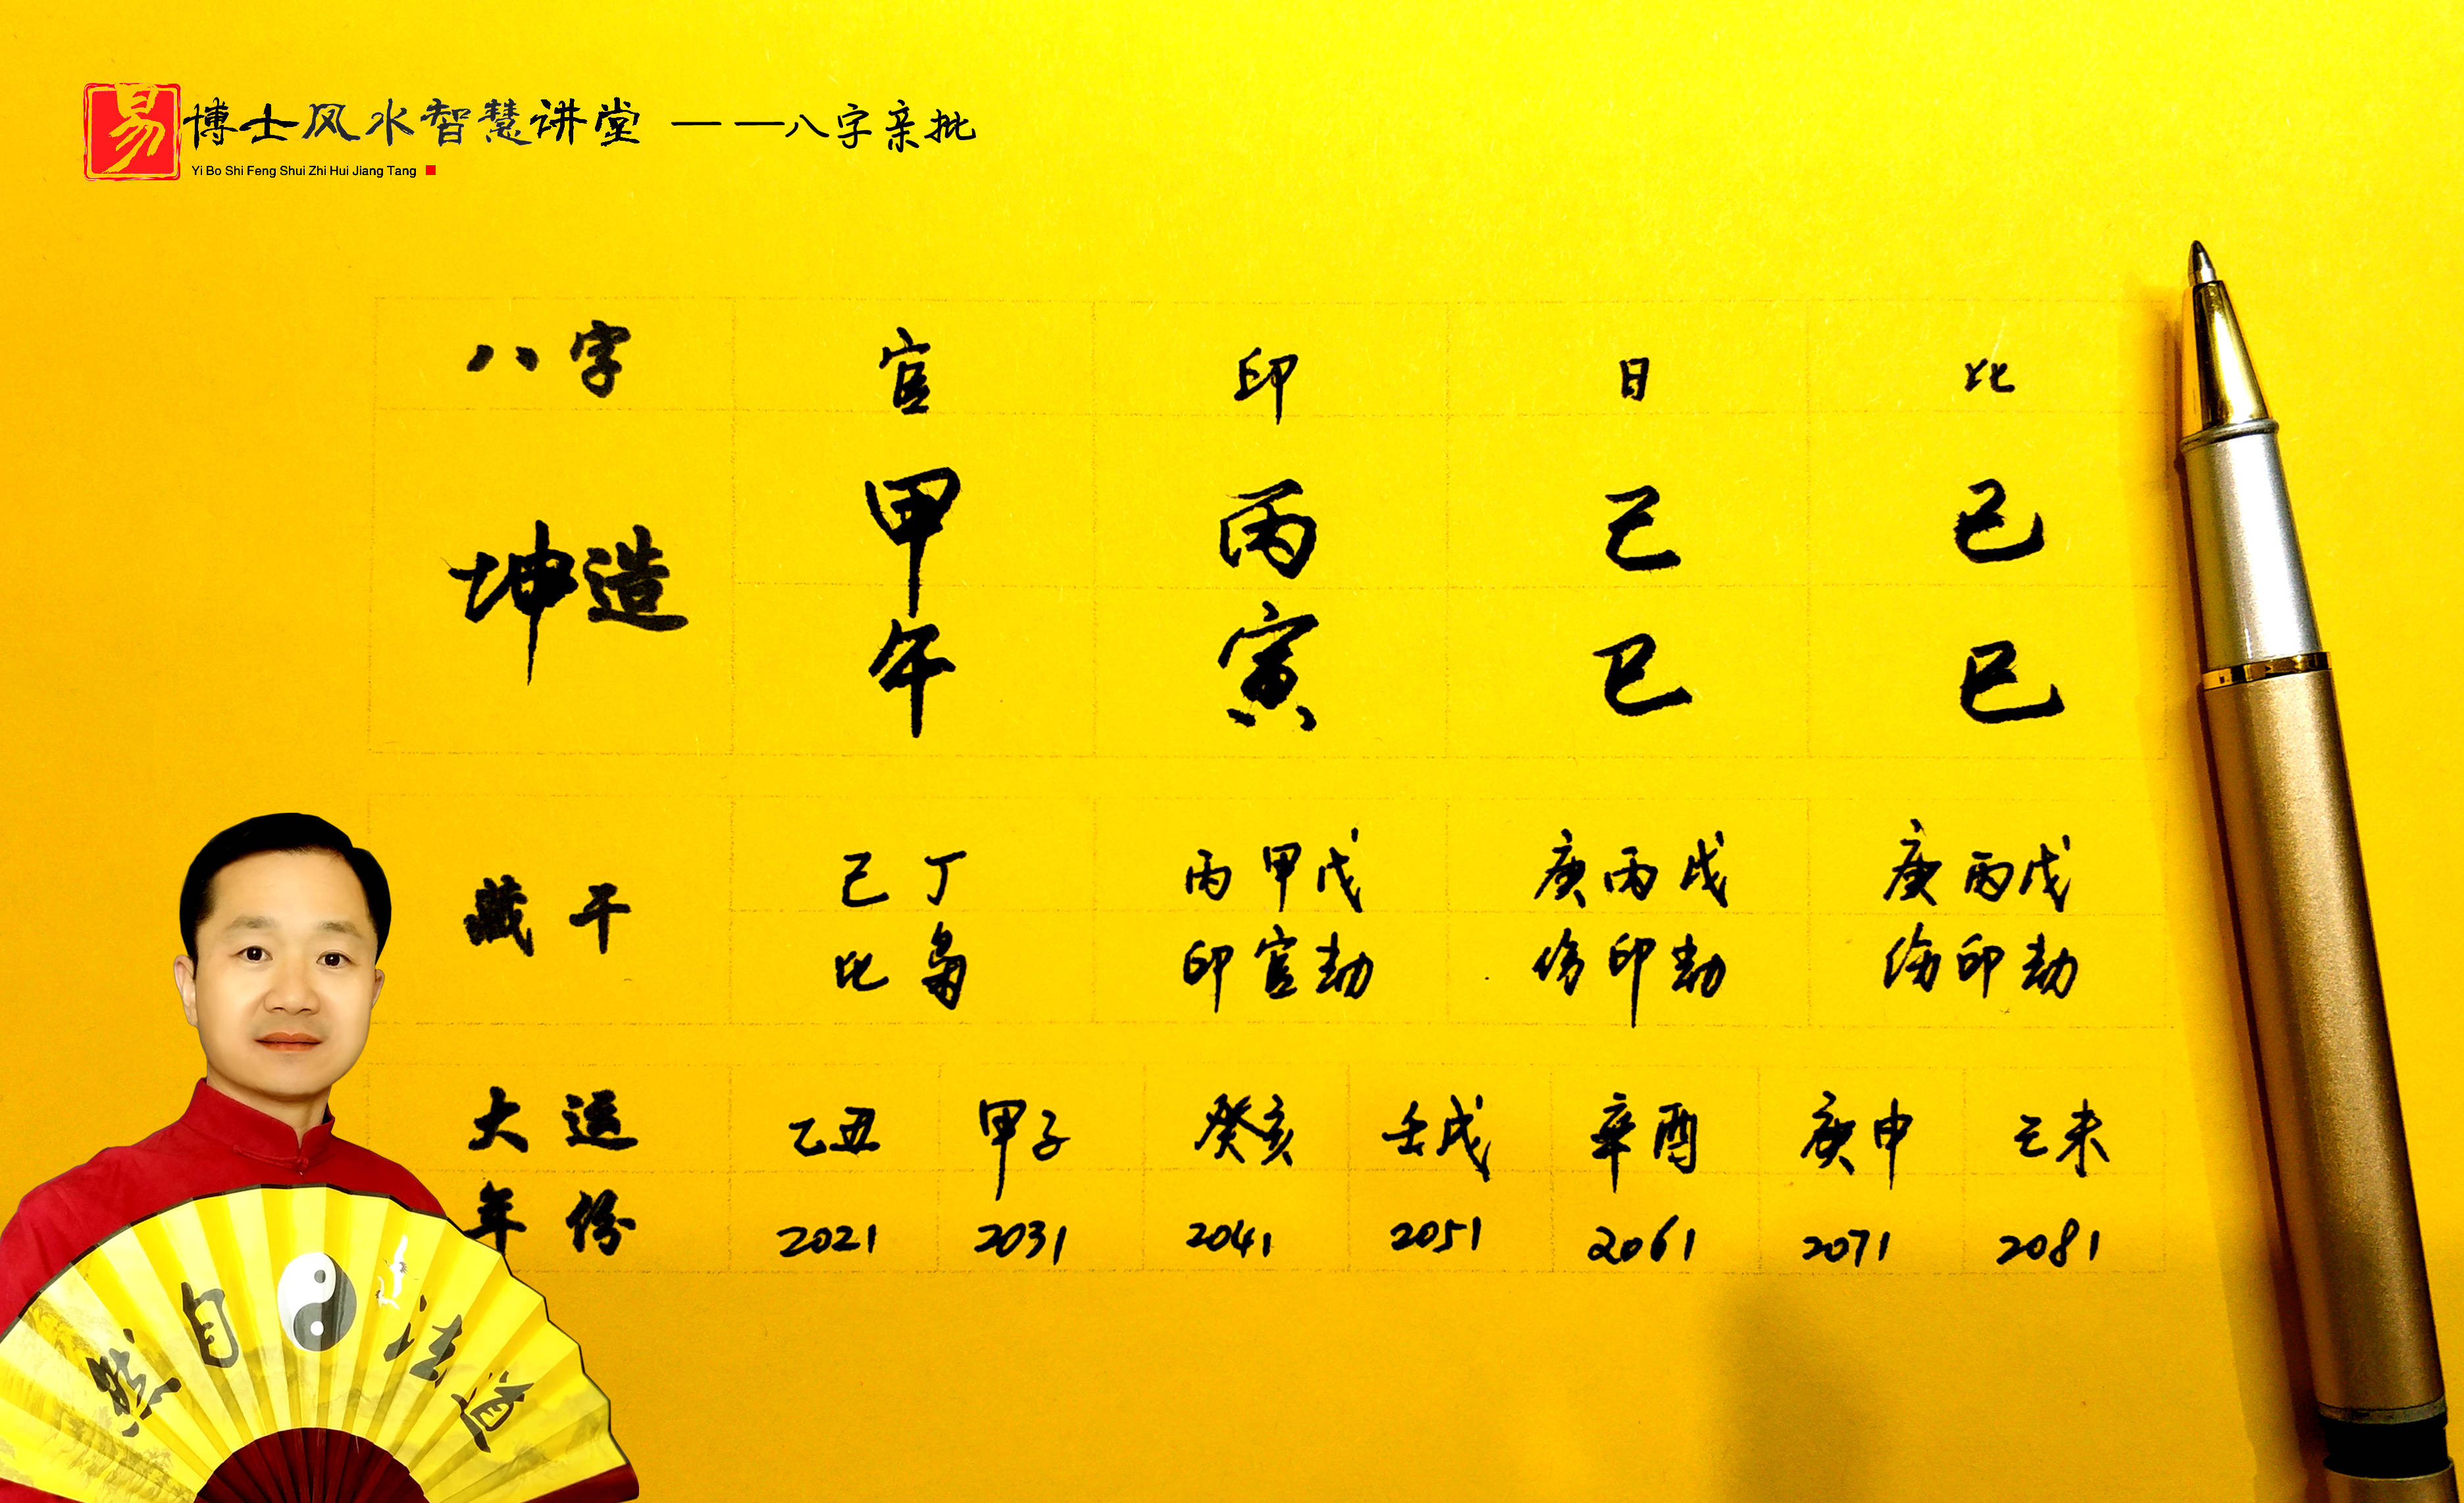 易 博士风水智慧讲堂 ——八字亲批
Yi Bo Shi Feng Shui Zhi Hui Jiang Tang
八字 官 印 日 比
坤造 甲 丙 己 己
午 寅 巳 巳
藏干 己丁 丙甲戊 庚丙戊 庚丙戊
比枭 印官劫 伤印劫 伤印劫
大运 乙丑 甲子 癸亥 壬戌 辛酉 庚申 己未
年份 2021 2031 2041 2051 2061 2071 2081
道法自然